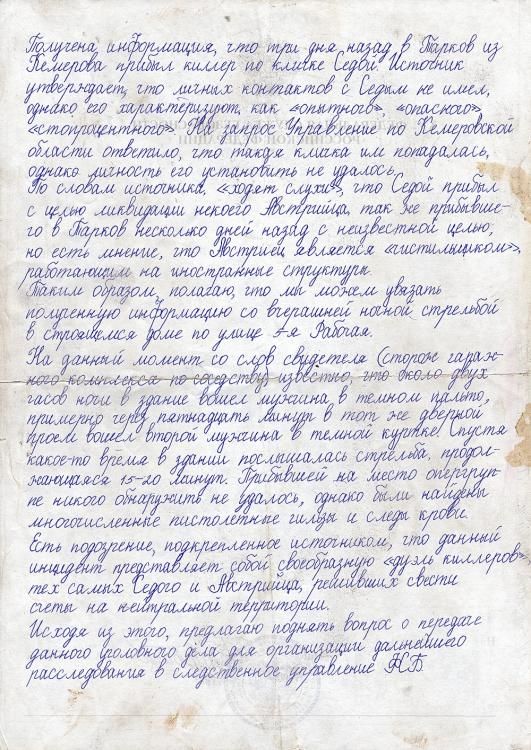 Получена информация, что три дня назад в Тарков из
Кемерова прибыл киллер по кличке Седой. Источник
утверждает, что личных контактов с Седым не имел,
однако его характеризуют, как «опытного», «опасного»
«стопроцентного». На запрос Управление по Кемеровской
области ответило, что такая кличка им попадалась,
однако личность его установить не удалось.
По словам источника, «ходят слухи», что Седой прибыл
с целью ликвидации некоего Австрийца, так же прибывше-
го в Тарков несколько дней назад с неизвестной целью,
но есть мнение, что Австриец является «чистильщиком»,
работающим на иностранные структуры.
Таким образом, полагаю, что мы можем увязать
полученную информацию со вчерашней ночной стрельбой
в строящемся доме по улице 4-я Рабочая.
На данный момент со слов свидетеля (сторож гараж-
ного комплекса по соседству) известно, что около двух
часов ночи в здание вошел мужчина в темном пальто,
примерно через пятнадцать минут в тот же дверной
проем вошел второй мужчина в темной куртке. Спустя
какое-то время в здании послышалась стрельба, продол-
жающаяся 15-20 минут. Прибывшей на место опергруп-
пе никого обнаружить не удалось, однако были найдены
многочисленные пистолетные гильзы и следы крови.
Есть подозрение, подкрепленное источником, что данный
инцидент представляет собой своеобразную «дуэль киллеров»
тех самых Седого и Австрийца, решивших свести
счеты на нейтральной территории.
Исходя из этого, предлагаю поднять вопрос о передаче
данного уголовного дела для организации дальнейшего
расследования в следственное управление НБ